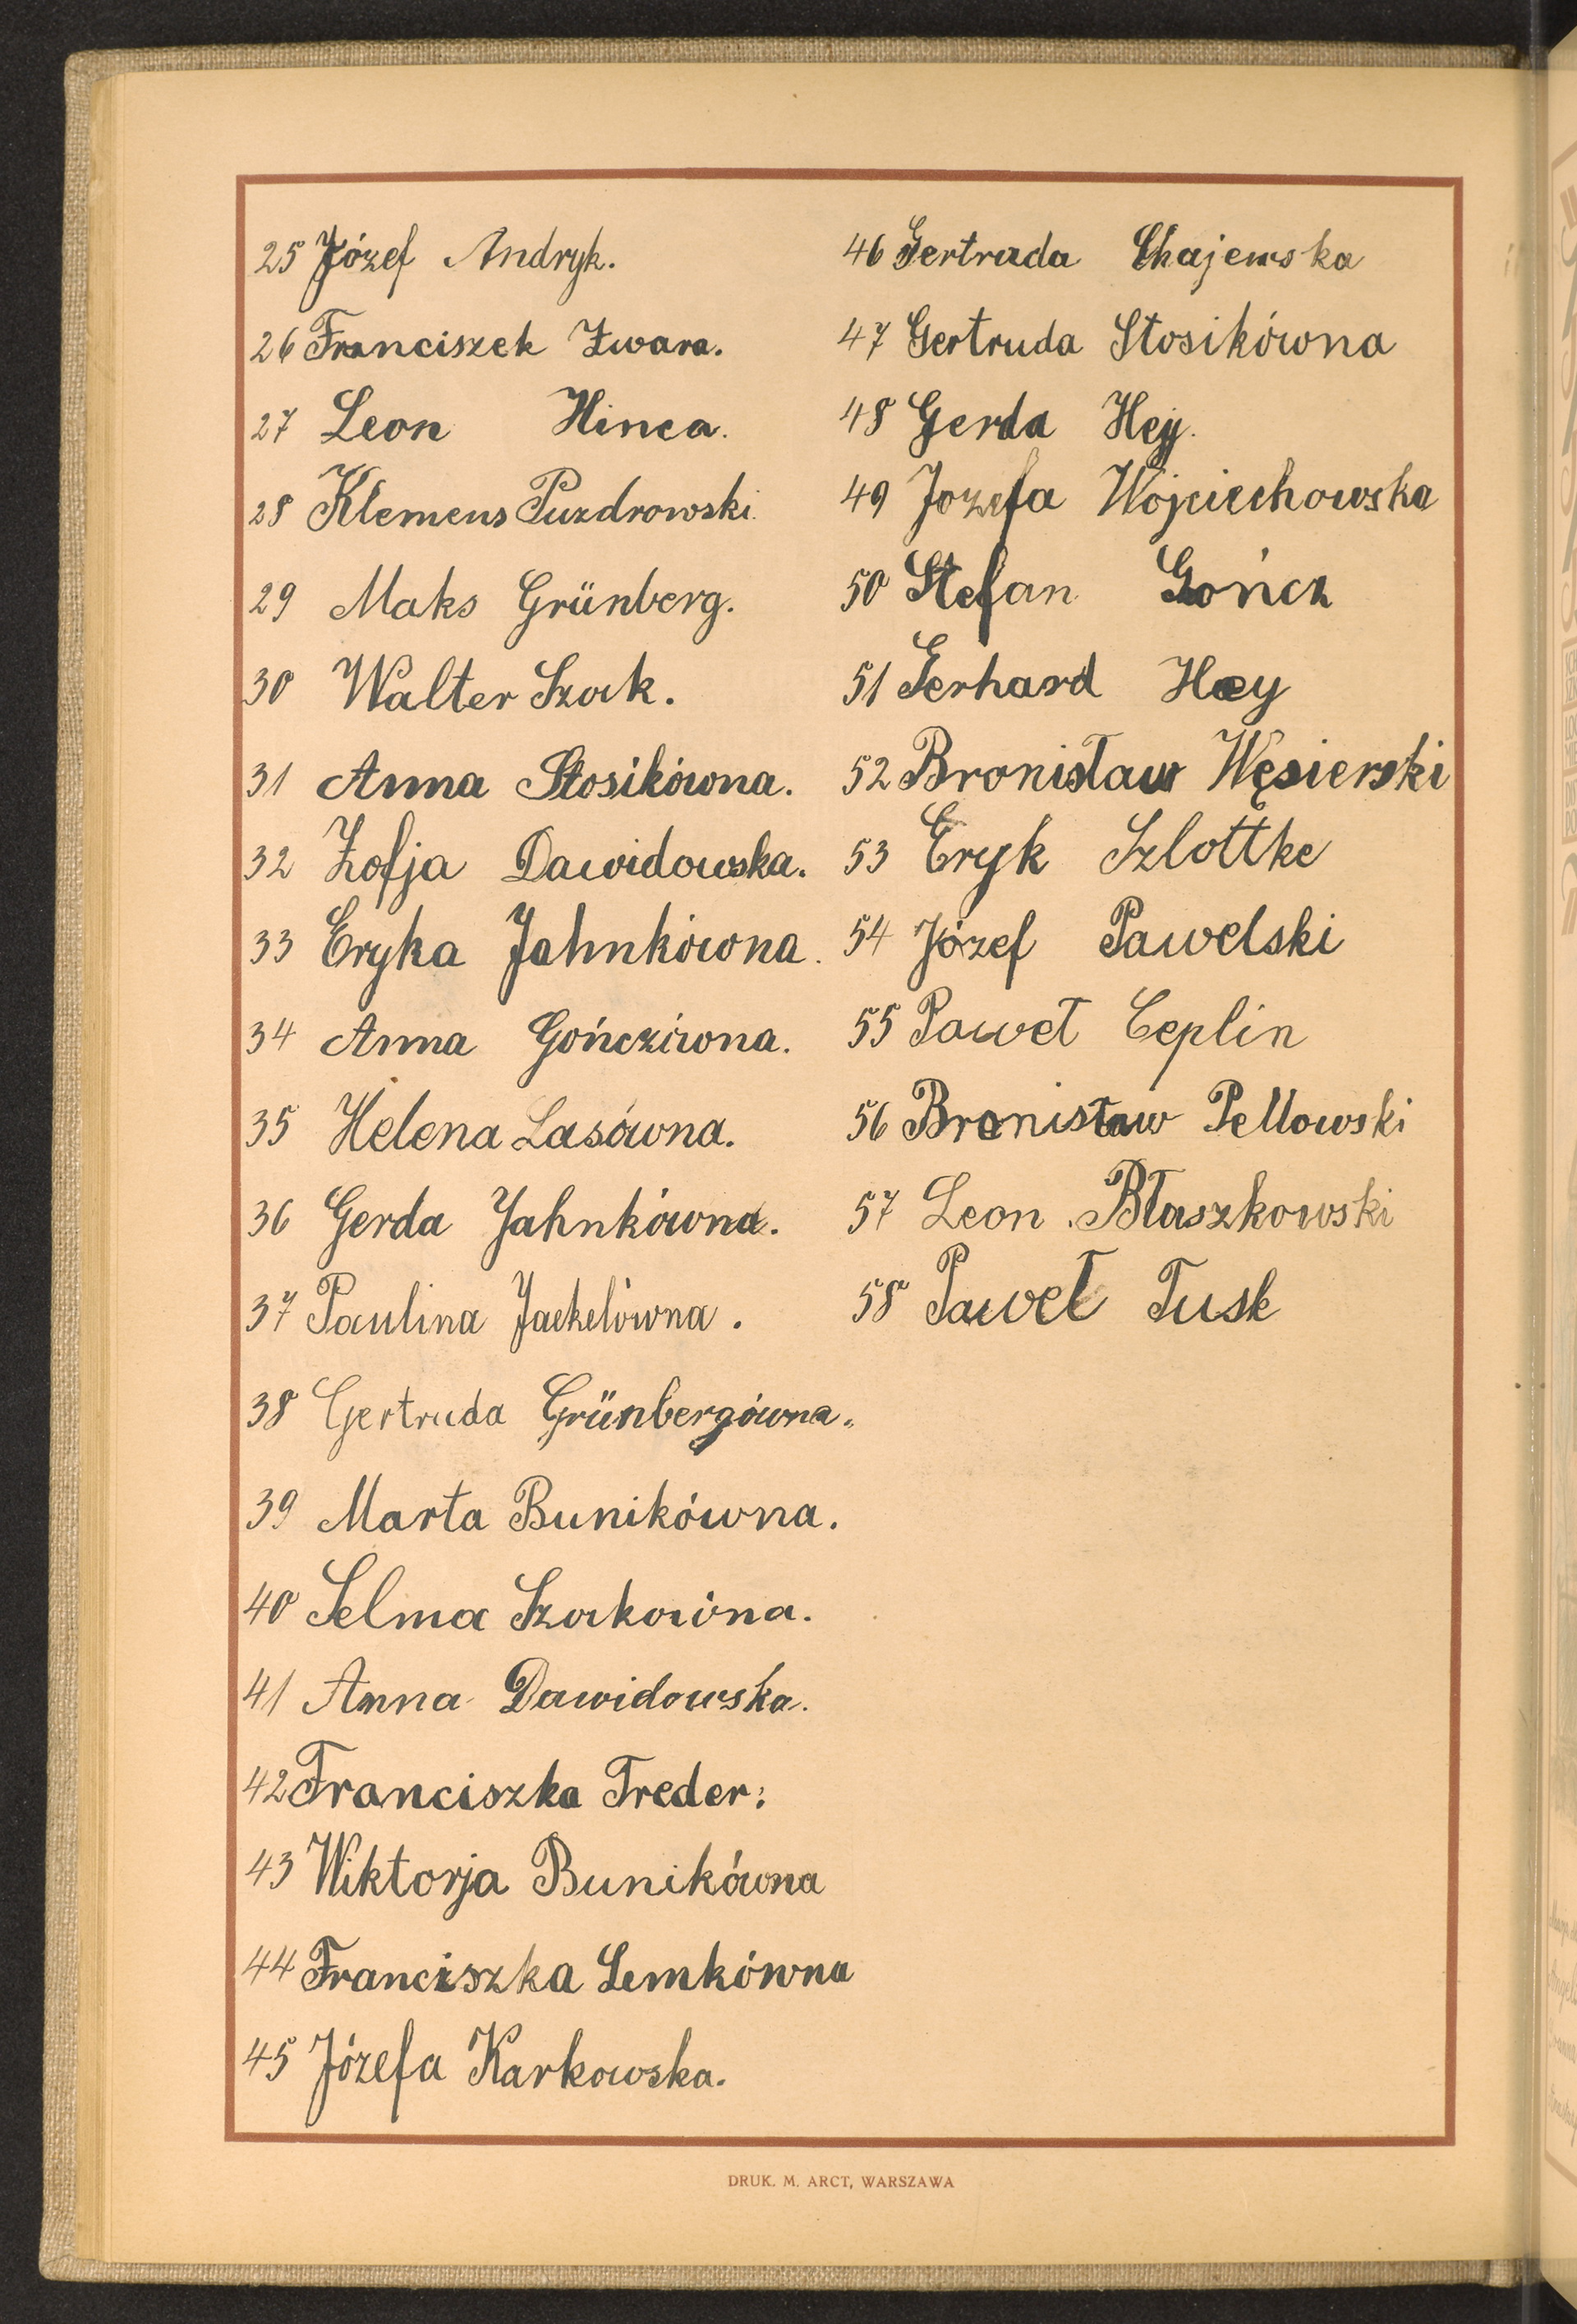 25 Józef Andryk.
26 Franciszek Żwara.
27 Leon Hinca.
28 Klemens Puzdrowski.
29 Maks Grünberg.
30 Walter Szock.
31 Anna Stosikówna.
32 Zofja Dawidowska.
33 Eryka Jahnkówna.
34 Anna Gończówna.
35 Helena Lasówna.
36 Gerda Jahnkówna.
37 Paulina Jaekelówna.
38 Gertruda Grünbergówna.
39 Marta Bunikówna.
40 Selma Szockówna.
41 Anna Dawidowska.
42 Franciszka Treder.
43 Wiktorja Bunikówna
44 Franciszka Lemkówna
45 Józefa Karkowska.
46 Gertruda Chajewska
47 Gertruda Stosikówna
48 Gerda Hey.
49 Jozefa Wojciechowska
50 Stefan Gończ
51 Gerhard Hey
52 Bronisław Węsierski
53 Eryk Szlottke
54 Józef Pawelski
55 Paweł Ceplin
56 Bronisław Pellowski
57 Leon Błaszkowski
58 Paweł Tusk
DRUK. M. ARCT, WARSZAWA